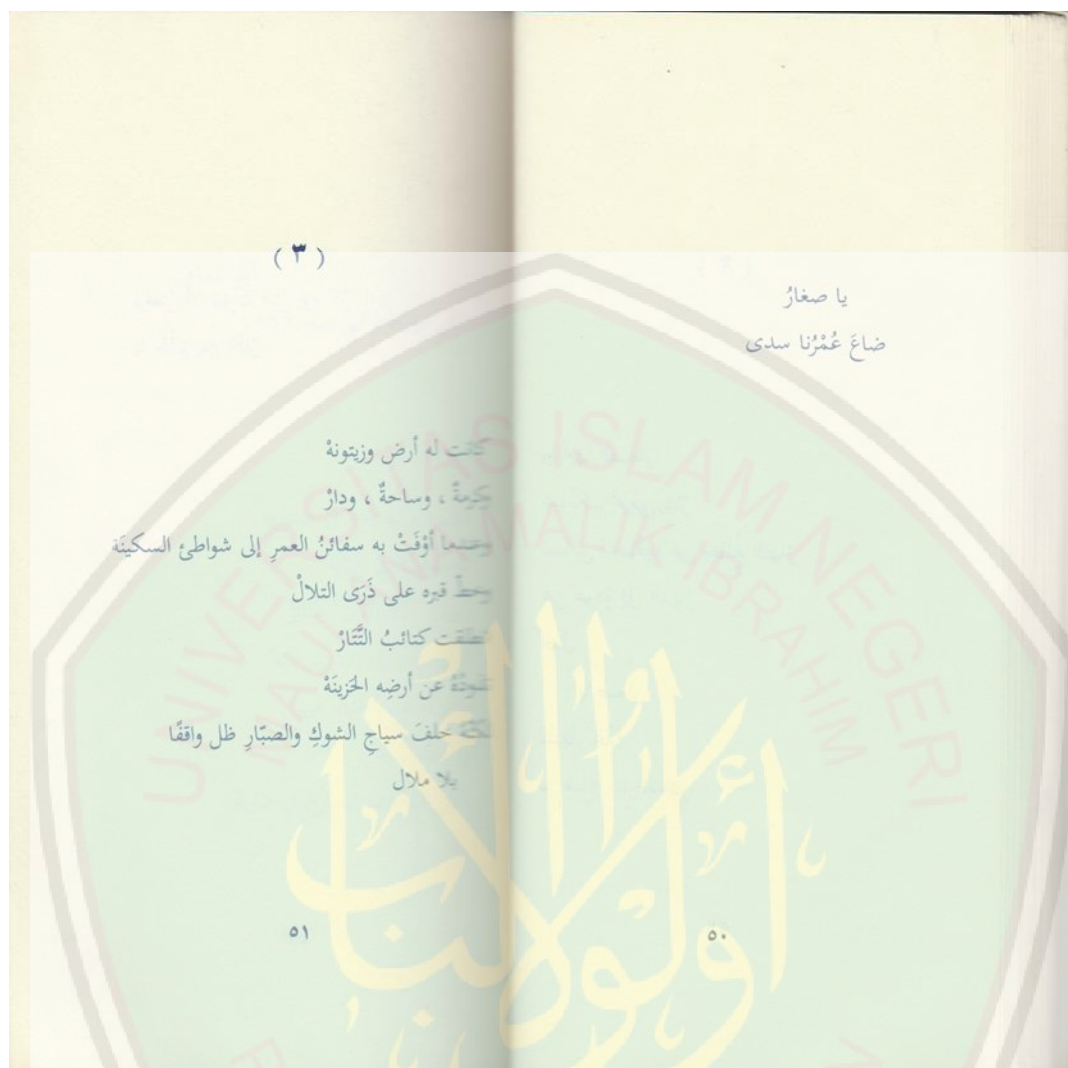 يا صغارُ
ضاعَ عُمْرُنا سدى
٥٠
( ٣ )
كانت له أرض وزيتونهْ
وكرمةٌ ، وساحةٌ ، ودارْ
وعندما أوْفَتْ به سفائنُ العمرِ إلى شواطئ السكينَة
وخطّ قبره على ذَرَى التلالْ
انطلقت كتائبُ التَّتَارْ
تذودُهُ عن أرضِه الحَزينَهْ
لكنّهُ خلفَ سياجِ الشوكِ والصبّارِ ظل واقفًا
بلا ملال
٥١
UNIVERSITAS ISLAM NEGERI
MAULANA MALIK IBRAHIM
أولو الألباب